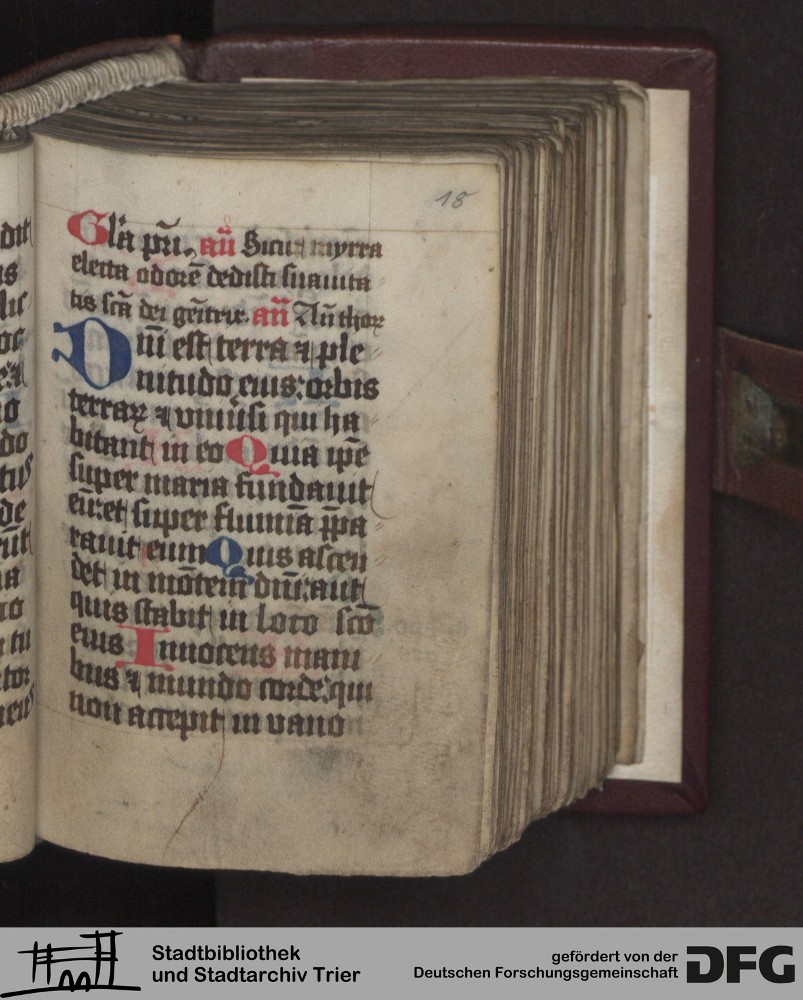 18
Gl'a pr̄i. an̄ Sicut myrra
electa odorē dedisti suauita
tis scā dei gēitrix. an̄ An̄ thorꝝ
Dn̄i est terra ⁊ ple
nitudo eius: orbis
terraꝝ ⁊ vniuˢi qui ha
bitant in eo Quia ip̄e
super maria fundauit
eū: et super flumīa p̄pa
rauit eum Quis ascen
det in mōtem dn̄i: aut
quis stabit in loco scō
eius Innocens mani
bus ⁊ mundo corde: qui
non accepit in vano
Stadtbibliothek
und Stadtarchiv Trier
gefördert von der
Deutschen Forschungsgemeinschaft
DFG